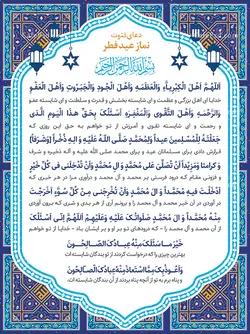 دعای قنوت
نماز عید فطر
بسم الله الرحمن الرحیم
اَللّهُمَّ اَهْلَ الْکِبْرِیاَّءِ وَالْعَظَمَةِ وَاَهْلَ الْجُودِ وَالْجَبَرُوتِ وَاَهْلَ الْعَفْوِ
خدایا ای اهل بزرگی و عظمت و ای شایسته بخشش و قدرت و سلطنت و ای شایسته عفو
وَالرَّحْمَةِ وَاَهْلَ التَّقْوی وَالْمَغْفِرَةِ اَسْئَلُکَ بِحَقِّ هذَا الْیَوْمِ الَّذی
و رحمت و ای شایسته تقوی و آمرزش از تو خواهم به حق این روزی که
جَعَلْتَهُ لِلْمُسْلِمینَ عیداً وَلِمُحَمَّدٍ صَلَّی اللهُ عَلَیْهِ وَ الِهِ ذُخْراً (وَشَرَفاً)
قرارش دادی برای مسلمانان عید و برای محمد صلی الله علیه و آله ذخیره و شرف
و کَرامَتا وَمَزیداً اَنْ تُصَلِّیَ عَلی مُحَمَّدٍ وَ الِ مُحَمَّدٍ وَاَنْ تُدْخِلَنی فی کُلِّ خَیْرٍ
و فزونی مقام که درود فرستی بر محمد و آل محمد و درآوری مرا در هر خیری که
اَدْخَلْتَ فیهِ مُحَمَّداً وَ الَ مُحَمَّدٍ وَاَنْ تُخْرِجَنی مِنْ کُلِّ سُوَّءٍ اَخْرَجْتَ
در آوردی در آن خیر محمد و آل محمد را و برونم آری از هر بدی و شری که برون آوردی
مِنْهُ مُحَمَّداً وَ الَ مُحَمَّدٍ صَلَواتُکَ عَلَیْهِ وَعَلَیْهِمْ اَللّهُمَّ اِنّی اَسْئَلُکَ
از آن محمد و آل محمد را - که درودهای تو بر او و بر ایشان باد - خدایا از تو خواهم
خَیْرَ ما سَئَلَکَ مِنْهُ عِبادُکَ الصّالِحُونَ
بهترین چیزی را که درخواست کردند از تو بندگان شایسته ات
وَاَعُوذُ بِکَ مِمَّا اسْتَعاذَ مِنْهُ عِبادُکَ الْصّالِحُونَ
و پناه برم به تو از آنچه پناه بردند از آن بندگان شایسته ات.